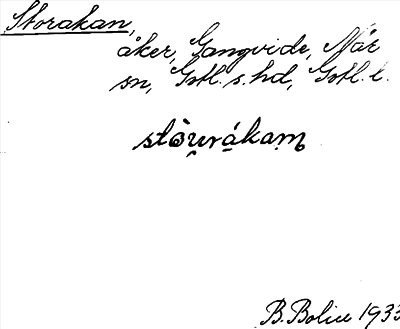 Storakan,
åker, Gangvide, När
sn, Gotl. s. hd, Gotl. l.
stòu̯rákam
B. Bolin 1933